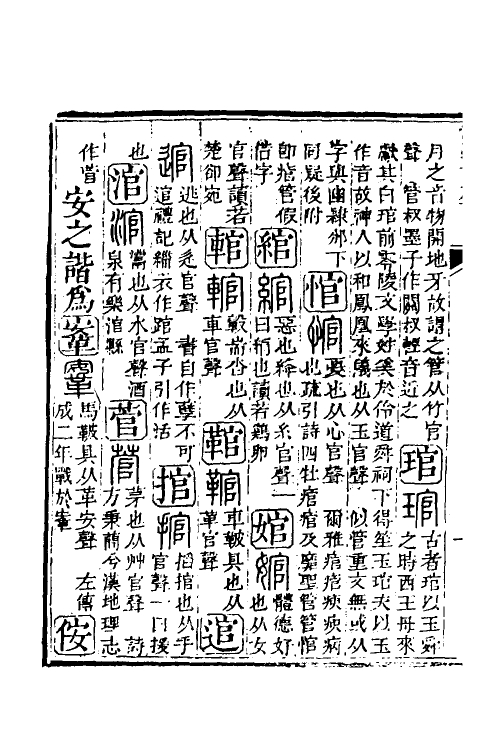 月之音物開地牙故謂之管从竹官
聲　管叔墨子作關叔輕音近之
琯琯
古者琯以玉舜
之時西王母來
獻其白琯前零陵文學姓奚於伶道舜祠下得笙玉琯夫以玉
作音故神人以和鳳凰來儀也从玉官聲　似管重文無或从
字與幽隸邠下
同疑後附
悺悺
憂也从心官聲　爾雅痯痯瘐瘐病
也疏引詩四牡痯痯及靡聖管管悺
即悹管假
借字
綰綰
惡也絳也从糸官聲一
曰綃也讀若雞卵
婠婠
體德好
也从女
官聲讀若
楚卻宛
輨輨
轂耑沓也从
車官聲
䩪䩪
車鞁具也从
革官聲
逭
逭
逃也从辵官聲　書自作孽不可
逭禮記緇衣作踣孟子引作活
捾捾
搯捾也从手
官聲一曰援
也
涫涫
㶣也从水官聲酒
泉有樂涫縣
菅菅
茅也从艸官聲　詩
方秉蕑今漢地理志
作菅
安之諧為鞌鞌
馬鞁具从革安聲　左傳
成二年戰於鞌
侒